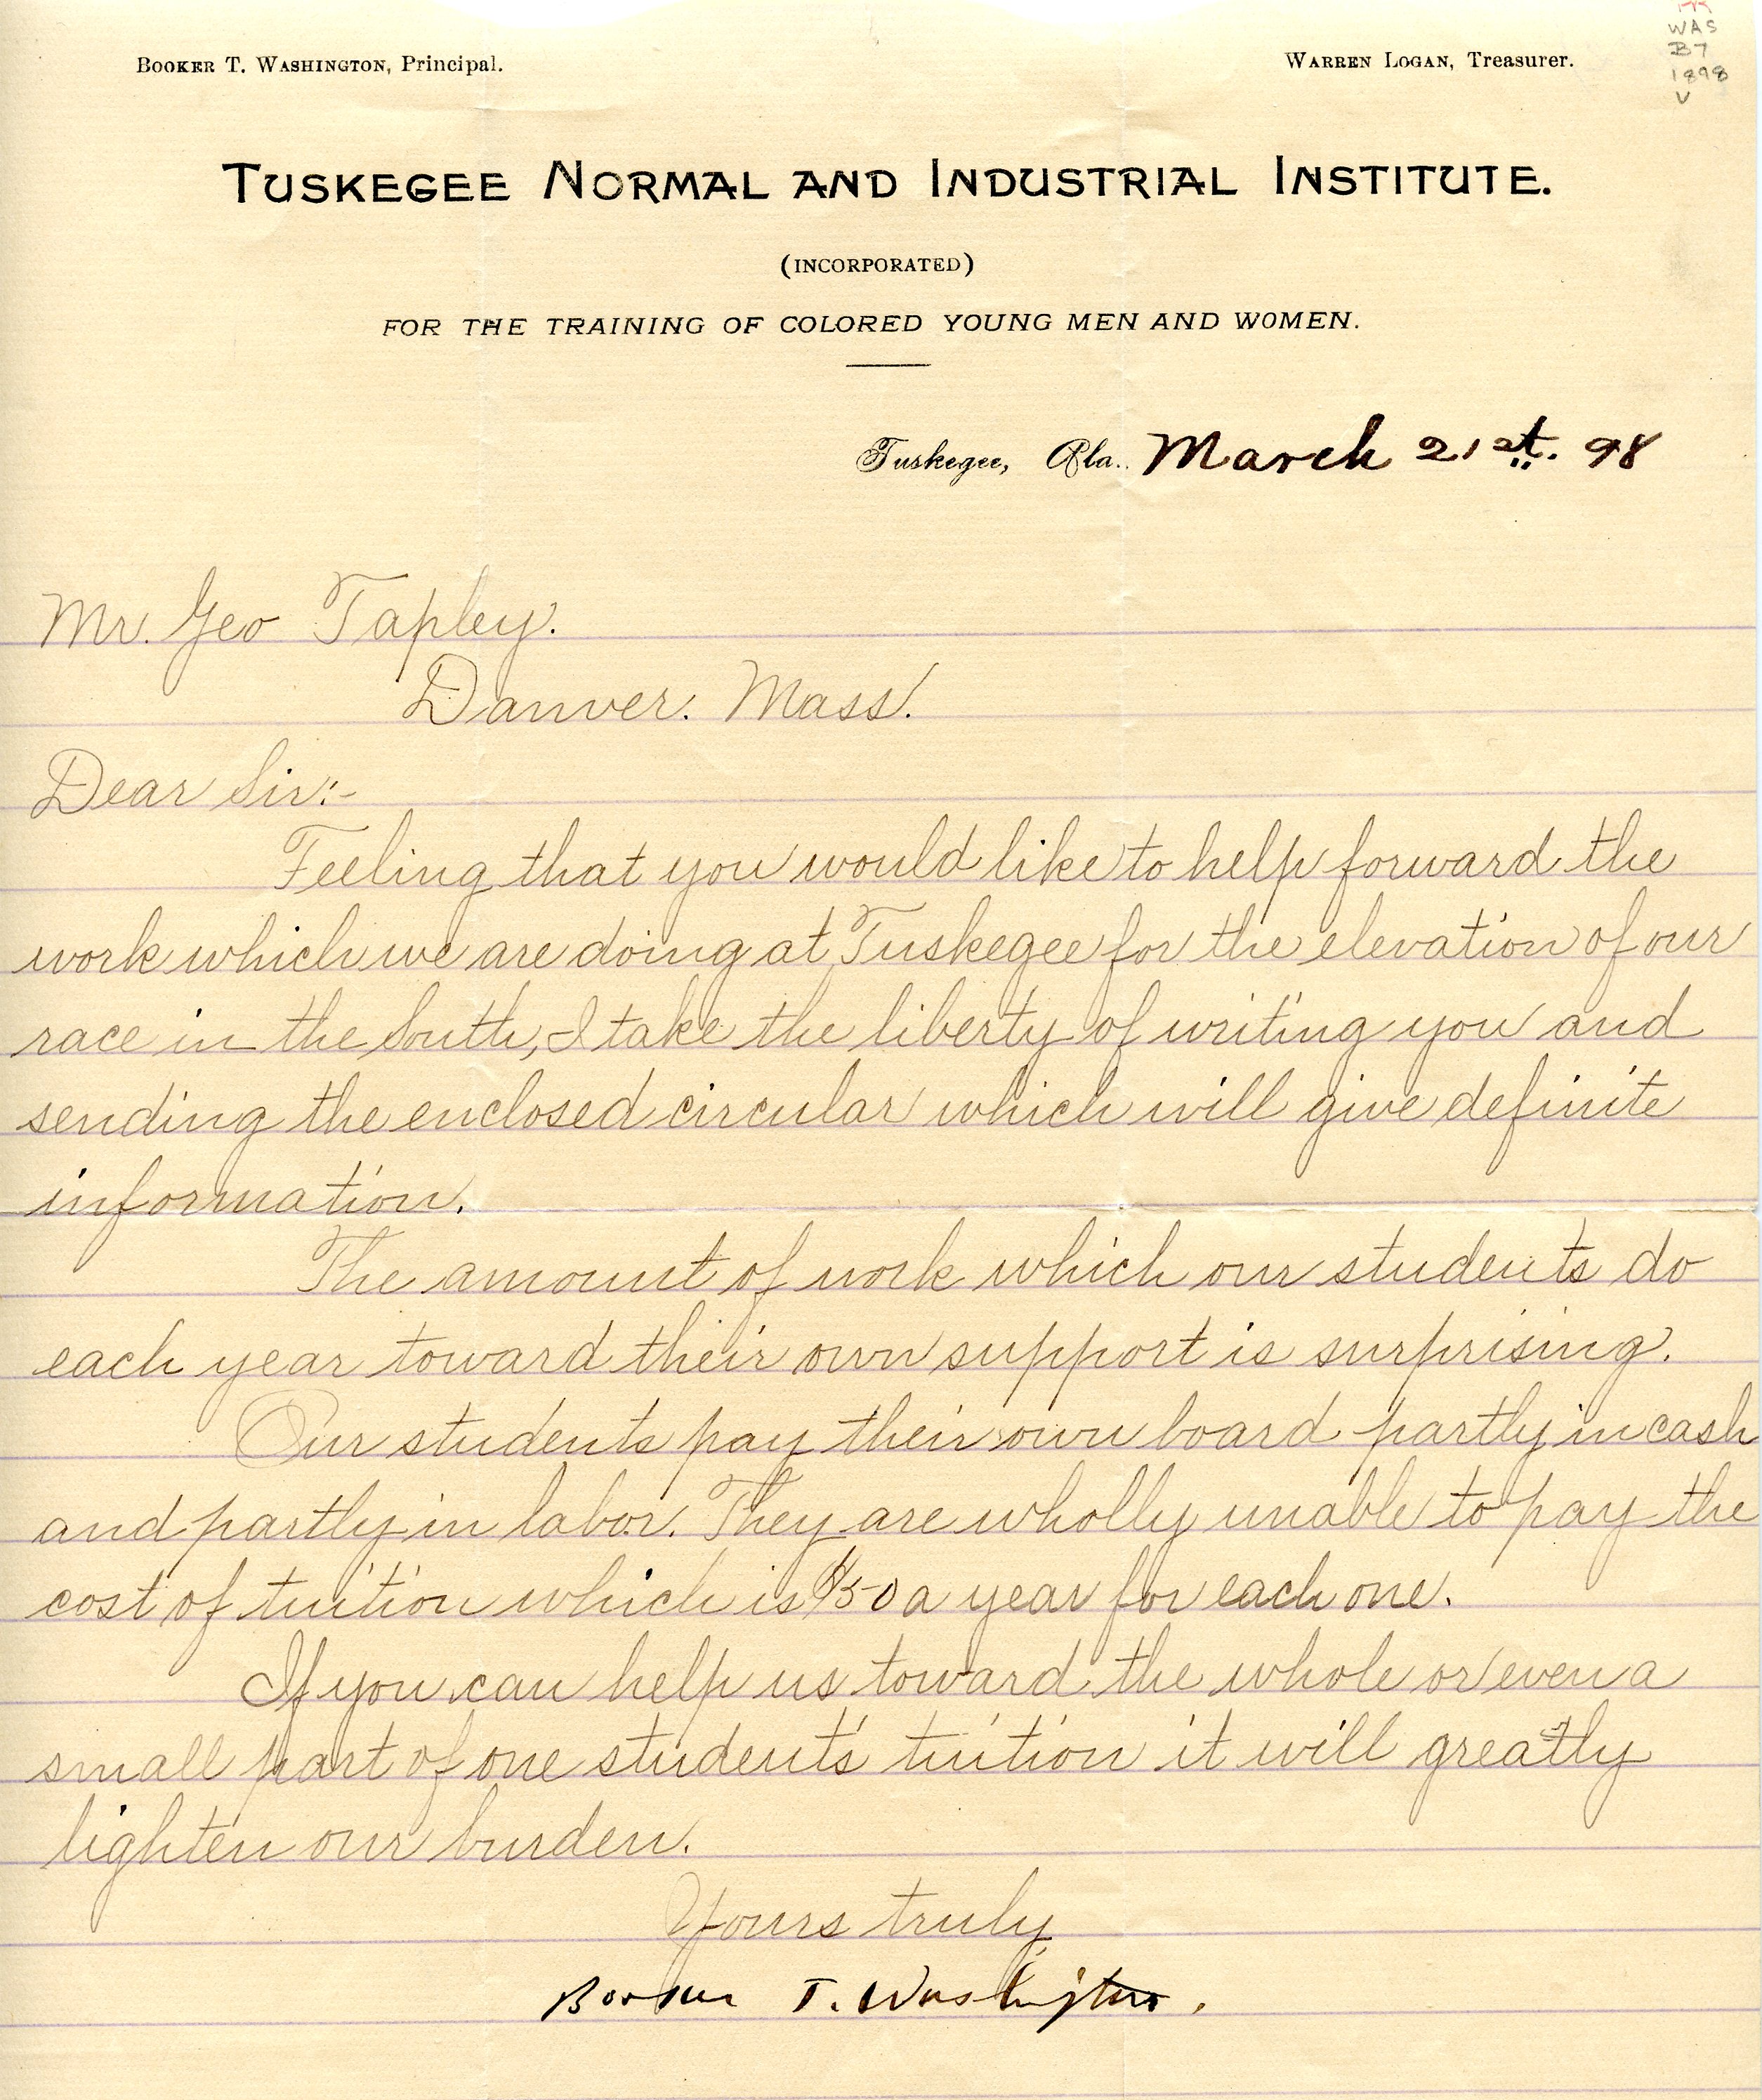 BOOKER T. WASHINGTON, Principal.
WARREN LOGAN, Treasurer.
WAS
B7
1898
V
TUSKEGEE NORMAL AND INDUSTRIAL INSTITUTE.
(INCORPORATED)
FOR THE TRAINING OF COLORED YOUNG MEN AND WOMEN.
Tuskegee, Ala. March 21st. 98
Mr. Geo Tapley.
Danver. Mass.
Dear Sir:-
Feeling that you would like to help forward the
work which we are doing at Tuskegee for the elevation of our
race in the South, I take the liberty of writing you and
sending the enclosed circular which will give definite
information.
The amount of work which our students do
each year toward their own support is surprising.
Our students pay their own board partly in cash
and partly in labor. They are wholly unable to pay the
cost of tuition which is $50 a year for each one.
If you can help us toward the whole or even a
small part of one student's tuition it will greatly
lighten our burden.
Yours truly
Booker T. Washington.